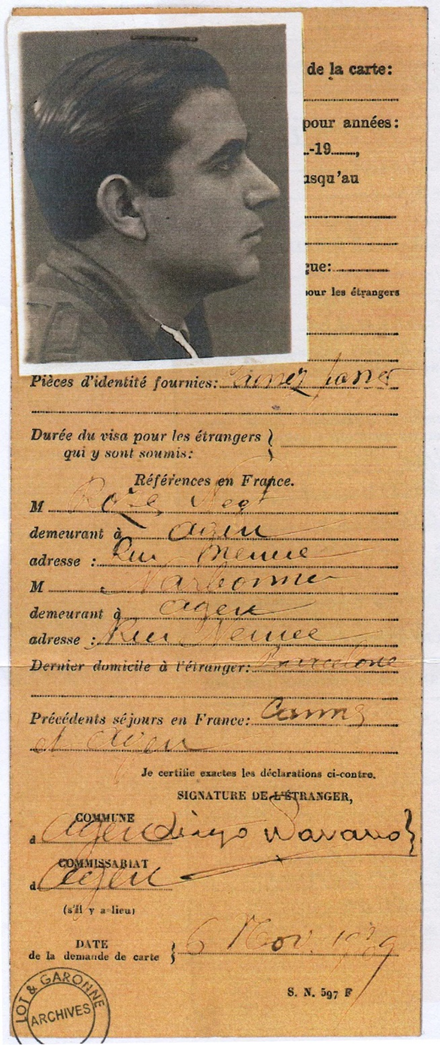 de la carte:
pour années:
-19........,
usqu'au
gue:
our les étrangers
Pièces d'identité fournies:
Durée du visa pour les étrangers }
qui y sont soumis:
Références en France.
M Roze
demeurant à Agen
adresse : Rue
M Narbonne
demeurant à Agen
adresse : Rue
Dernier domicile à l'étranger: Barcelone
Précédents séjours en France:
et Agen
Je certifie exactes les déclarations ci-contre.
SIGNATURE DE L'ÉTRANGER,
COMMUNE
d Agen diego Navarro }
COMMISSARIAT
d Agen
(s'il y a lieu)
DATE
de la demande de carte } 6 Nov. 1939
S. N. 597 F
LOT & GARONNE
ARCHIVES